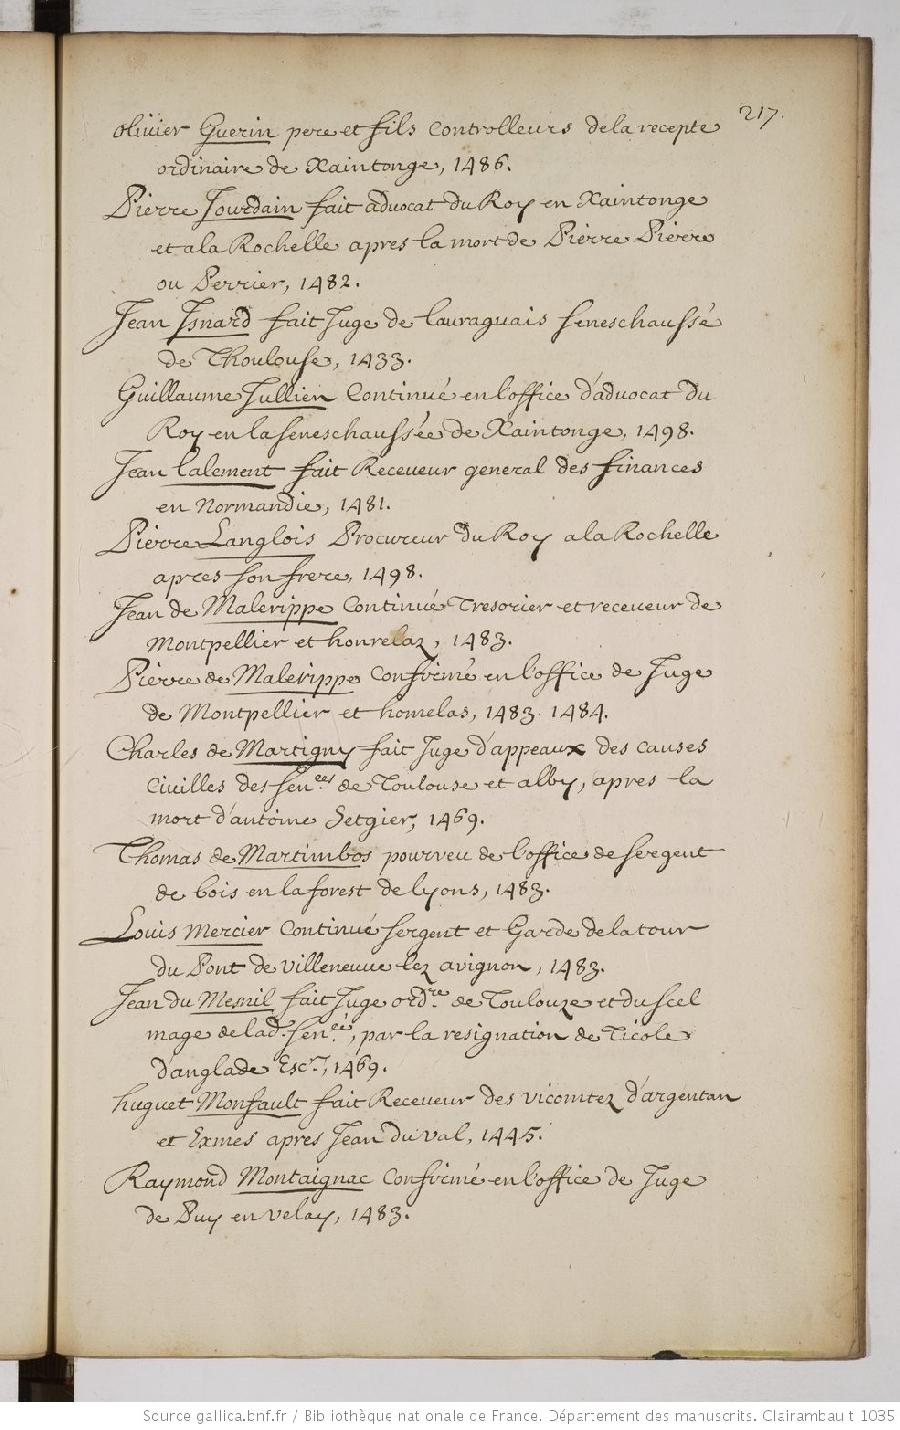 217.
olivier Guerin pere et fils Controlleurs de la recepte
ordinaire de Xaintonge, 1486.
Pierre Jourdain fait advocat du Roy en Xaintonge
et a la Rochelle apres la mort de Pierre Pierre
ou Perrier, 1482.
Jean Isnard fait Juge de lauraguais seneschaussé
de Thoulouse, 1433.
Guillaume Jullien Continué en l'office d'advocat du
Roy en la seneschaussée de Xaintonge, 1498.
Jean Lalement fait Receveur general des finances
en Normandie, 1481.
Pierre Langlois Procureur du Roy a la Rochelle
apres son frere, 1498.
Jean de Malerippe Continué Tresorier et receveur de
Montpellier et homelaz, 1483.
Pierre de Malerippe Confirmé en l'office de Juge
de Montpellier et homelas, 1483. 1484.
Charles de Martigny fait Juge d'appeaux des causes
Civilles des sen.ces de Toulouse et alby, apres la
mort d'antoine Setgier, 1469.
Thomas de Martimbos pourveu de l'office de sergent
de bois en la forest de lyons, 1483.
Louis Mercier Continué sergent et Garde de la tour
du Pont de Villeneuve lez avignon, 1483.
Jean du Mesnil fait Juge ord.re de Toulouze et du scel
mage de lad. sen.cé, par la resignation de Ticole
d'anglade Esc.r, 1469.
huguet Monfault fait Receveur des vicomtez d'argentan
et Exmes apres Jean du val, 1445.
Raymond Montaignac Confirmé en l'office de Juge
de Puy en velay, 1483.
Source gallica.bnf.fr / Bibliothèque nationale de France. Département des manuscrits. Clairambault 1035